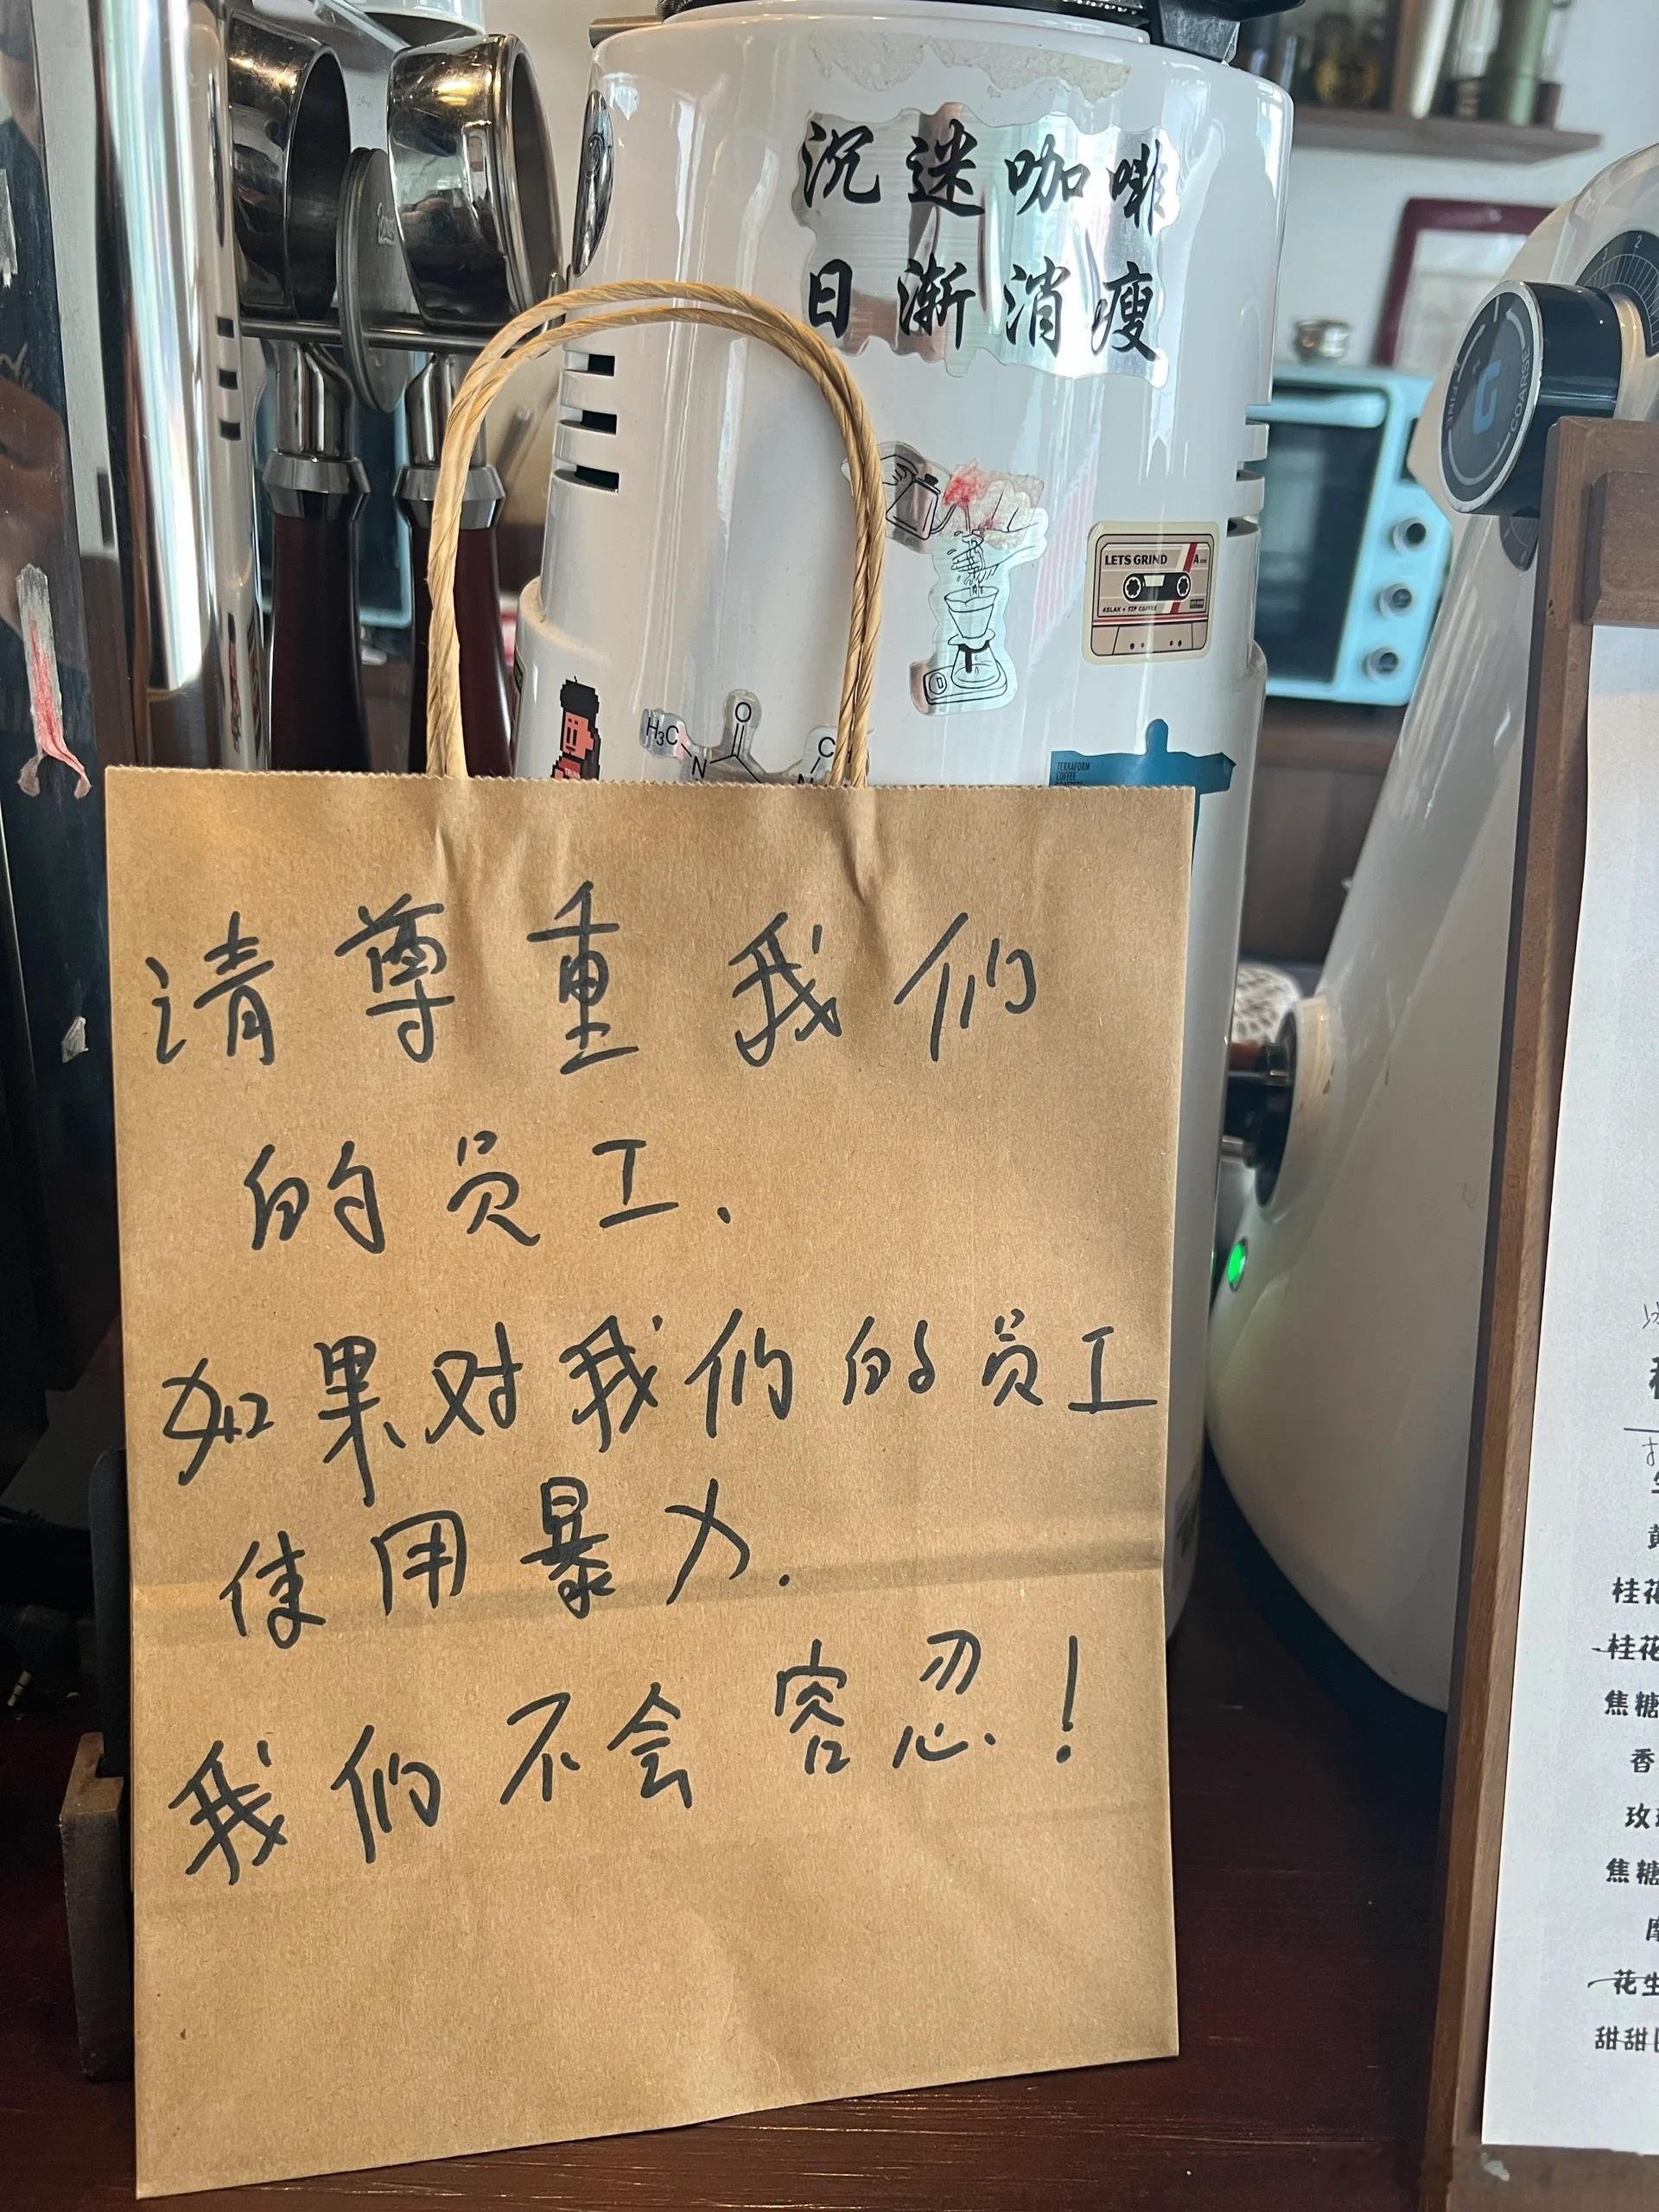 沉迷咖啡
日渐消瘦
FINE
COARSE
LETS GRIND
A
RELAX + SIP COFFEE
H₃C
O
N
N
C
TERRAFORM
COFFEE
请尊重我们
的员工.
如果对我们的员工
使用暴力.
我们不会容忍!
桂花
桂花
焦糖
香
玫
焦糖
花生
甜甜